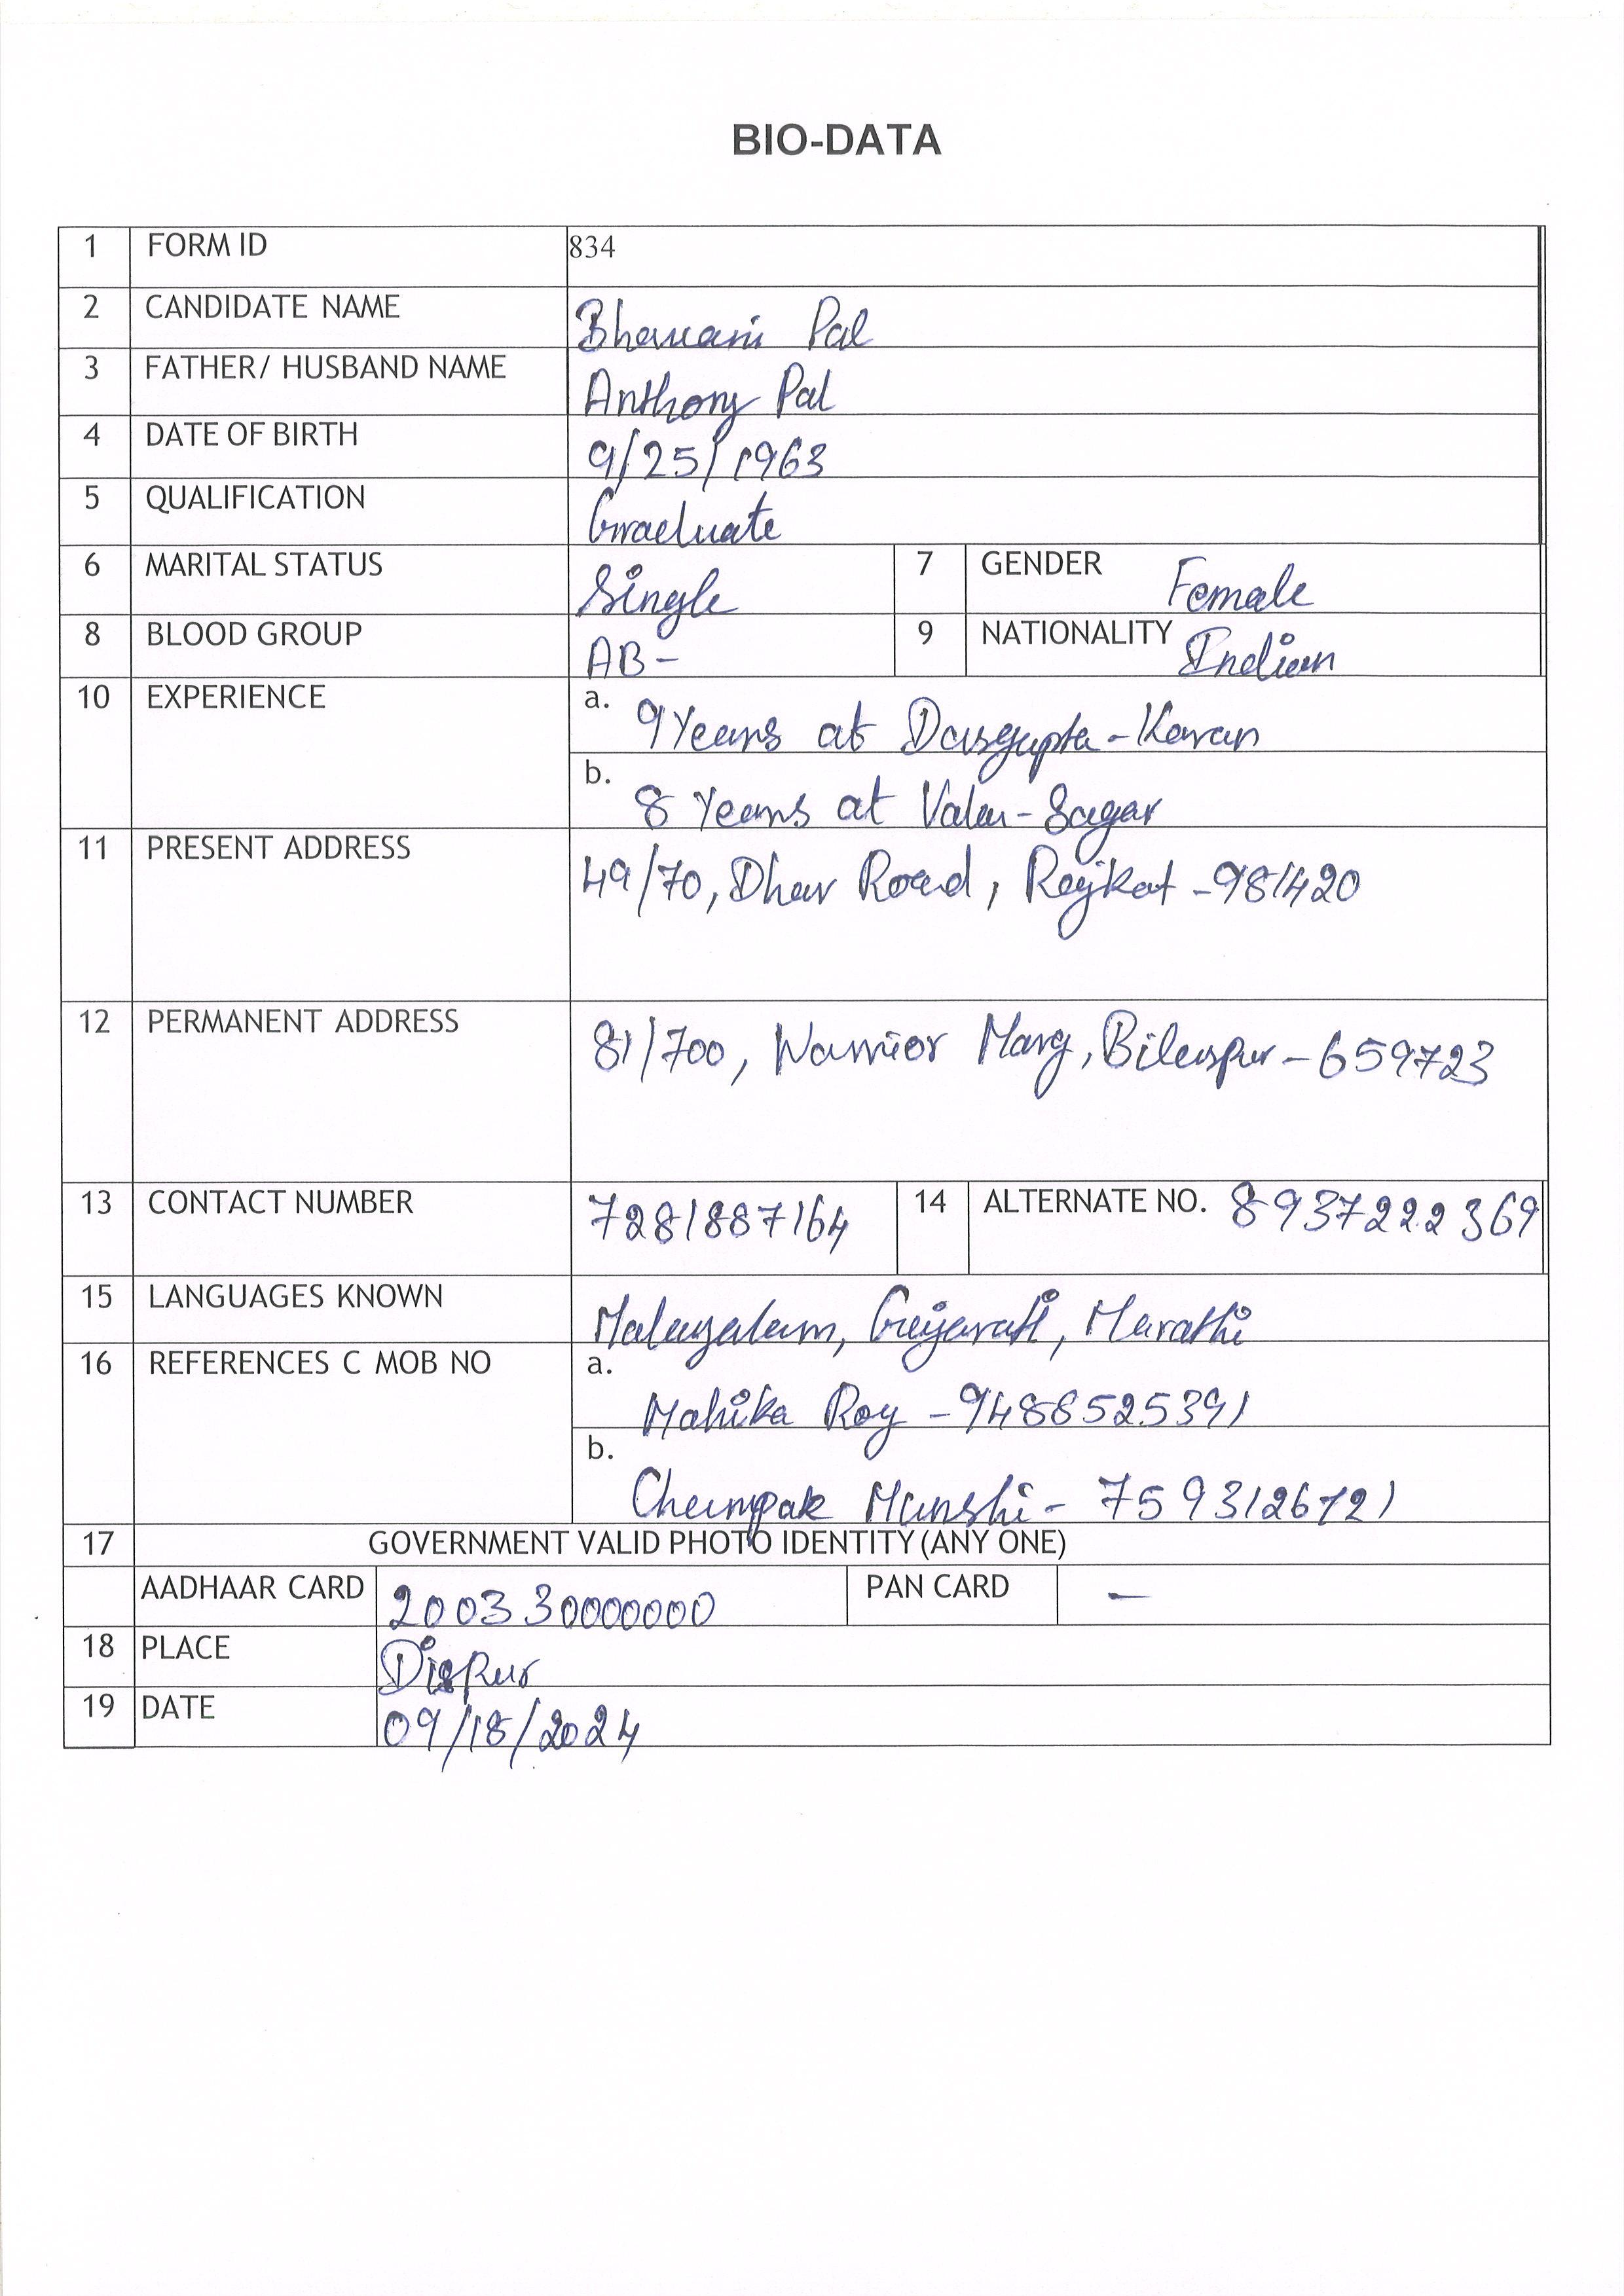 BIO-DATA
1 FORM ID 834
2 CANDIDATE NAME Bhavani Pal
3 FATHER/ HUSBAND NAME Anthony Pal
4 DATE OF BIRTH 9/25/1963
5 QUALIFICATION Graduate
6 MARITAL STATUS Single 7 GENDER Female
8 BLOOD GROUP AB- 9 NATIONALITY Indian
10 EXPERIENCE a. 9 Years at Dasgupta-Karan
b. 8 Years at Vala-Sagar
11 PRESENT ADDRESS 49/70, Dhar Road, Rajkot -981420
12 PERMANENT ADDRESS 81/700, Warrior Marg, Bilaspur-659723
13 CONTACT NUMBER 7281887164 14 ALTERNATE NO. 8937222369
15 LANGUAGES KNOWN Malayalam, Gujarati, Marathi
16 REFERENCES C MOB NO a.
Mahika Roy -9488525391
b.
Champak Munshi- 7593126721
17 GOVERNMENT VALID PHOTO IDENTITY (ANY ONE)
AADHAAR CARD 200330000000 PAN CARD —
18 PLACE Dispur
19 DATE 09/18/2024